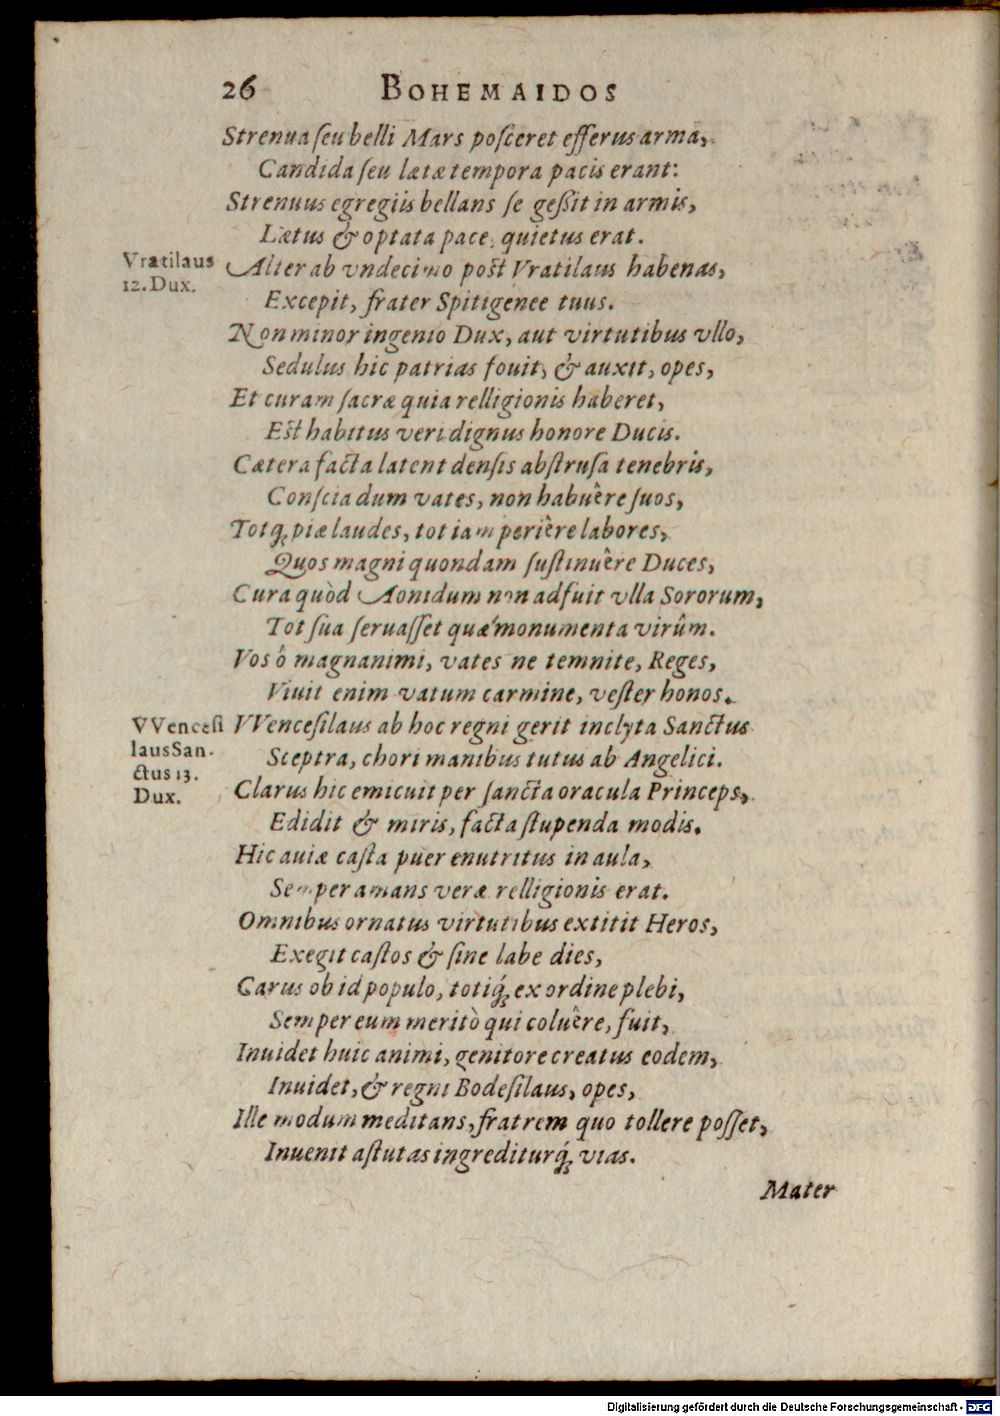 26 BOHEMAIDOS
Strenua ſeu belli Mars poſceret efferus arma,
Candida ſeu lætæ tempora pacis erant:
Strenuus egregiis bellans ſe geßit in armis,
Lætus & optata pace, quietus erat.
Vratilaus
12. Dux.
Alter ab vndecimo post Vratilaus habenas,
Excepit, frater Spitigenee tuus.
Non minor ingenio Dux, aut virtutibus vllo,
Sedulus hic patrias fouit, & auxit, opes,
Et curam ſacræ quia relligionis haberet,
Est habitus veri dignus honore Ducis.
Cætera facta latent denſis abſtruſa tenebris,
Conſcia dum vates, non habuêre ſuos,
Totq́; piæ laudes, tot iam periêre labores,
Quos magni quondam ſuſtinuêre Duces,
Cura quòd Aonidum non adfuit vlla Sororum,
Tot ſua ſeruaſſet quæ monumenta virûm.
Vos ô magnanimi, vates ne temnite, Reges,
Viuit enim vatum carmine, veſter honos.
VVenceſi
laus San-
ctus 13.
Dux.
VVenceſilaus ab hoc regni gerit inclyta Sanctus
Sceptra, chori manibus tutus ab Angelici.
Clarus hic emicuit per ſancta oracula Princeps,
Edidit & miris, facta ſtupenda modis.
Hic auiæ caſta puer enutritus in aula,
Semper amans veræ relligionis erat.
Omnibus ornatus virtutibus extitit Heros,
Exegit caſtos & ſine labe dies,
Carus ob id populo, totiq́; ex ordine plebi,
Semper eum meritò qui coluêre, fuit,
Inuidet huic animi, genitore creatus eodem,
Inuidet, & regni Bodeſilaus, opes,
Ille modum meditans, fratrem quo tollere poſſet,
Inuenit aſtutas ingrediturq́; vias.
Mater
Digitalisierung gefördert durch die Deutsche Forschungsgemeinschaft - DFG